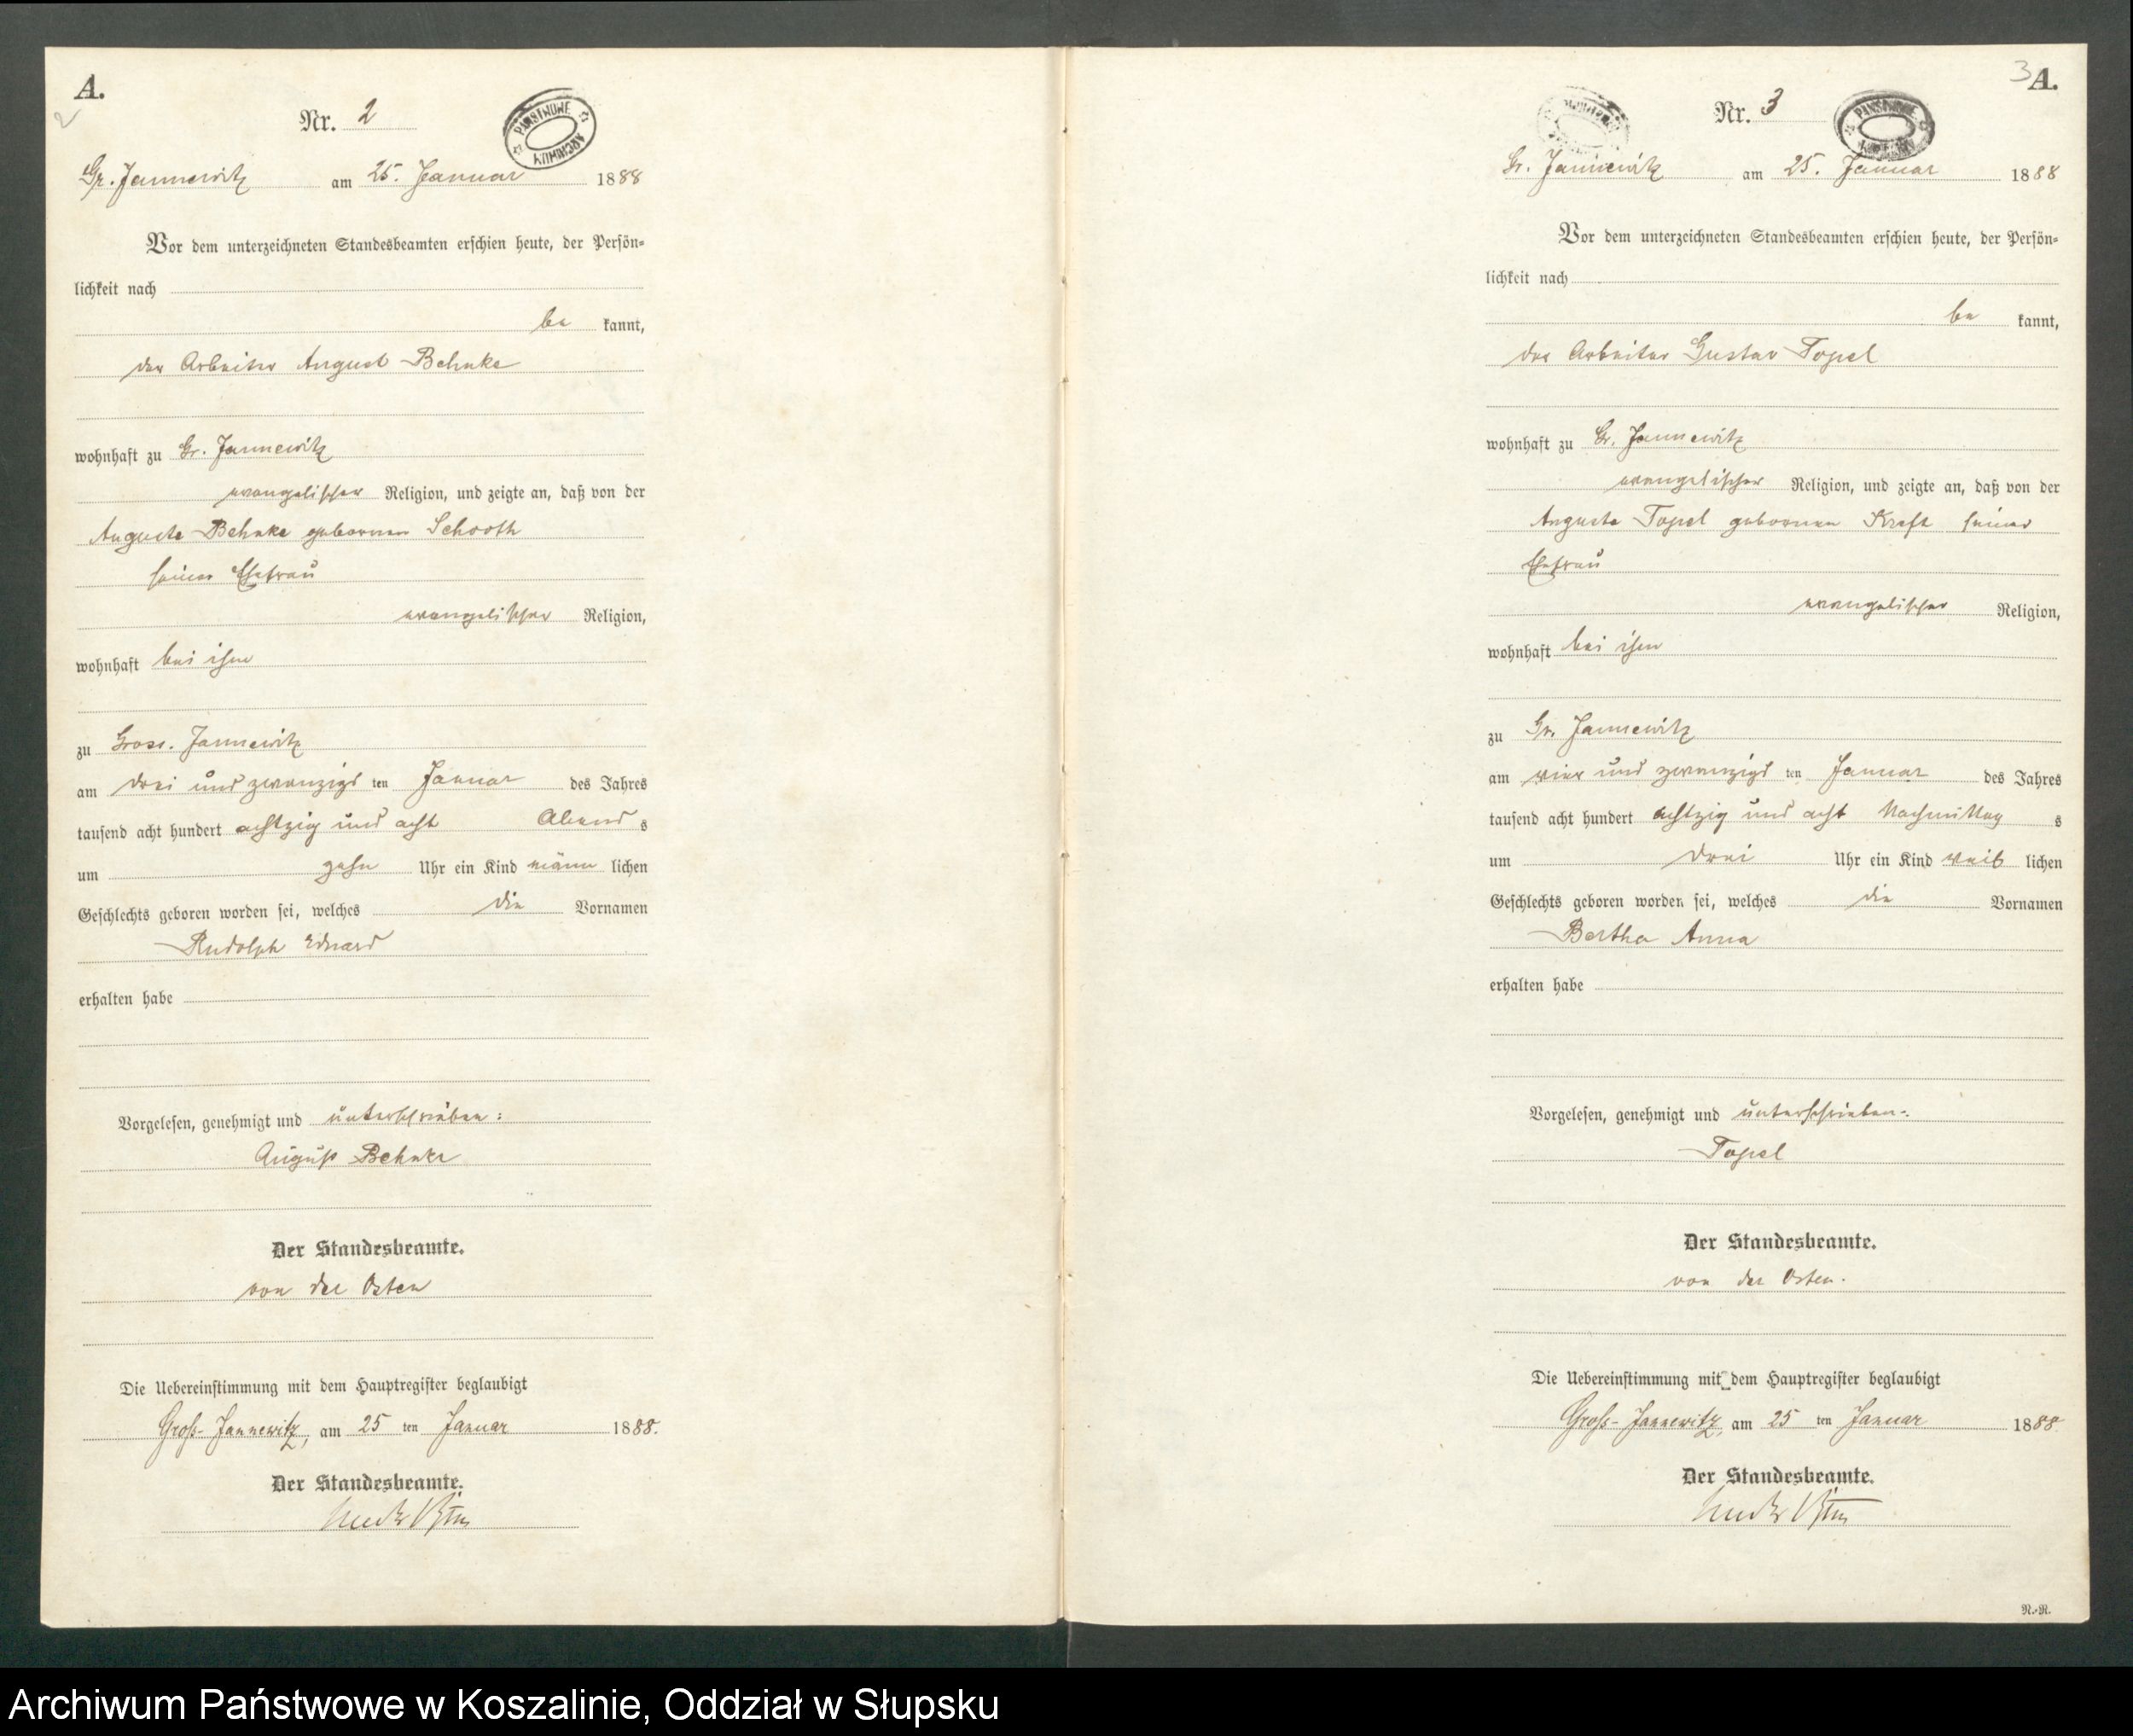 A.
2
Nr. 2
PAŃSTWOWE ARCHIWUM
Gr. Jannewitz am 25. Januar 1888
Vor dem unterzeichneten Standesbeamten erschien heute, der Persön-
lichkeit nach
be kannt,
der Arbeiter August Behnke
wohnhaft zu Gr. Jannewitz
evangelischer Religion, und zeigte an, daß von der
Auguste Behnke geborenen Schooth
seiner Ehefrau
evangelischer Religion,
wohnhaft bei ihm
zu Gross. Jannewitz
am drei und zwanzigs ten Januar des Jahres
tausend acht hundert achtzig und acht Abend s
um zehn Uhr ein Kind männ lichen
Geschlechts geboren worden sei, welches die Vornamen
Rudolph Eduard
erhalten habe
Vorgelesen, genehmigt und unterschrieben:
August Behnke
Der Standesbeamte.
von der Osten
Die Uebereinstimmung mit dem Hauptregister beglaubigt
Groß-Jannewitz, am 25 ten Januar 1888.
Der Standesbeamte.
3 A.
Nr. 3
PAŃSTWOWE ARCHIWUM
Gr. Jannewitz am 25. Januar 1888
Vor dem unterzeichneten Standesbeamten erschien heute, der Persön-
lichkeit nach
be kannt,
der Arbeiter Gustav Topel
wohnhaft zu Gr. Jannewitz
evangelischer Religion, und zeigte an, daß von der
Auguste Topel geborenen Kreft seiner
Ehefrau
evangelischer Religion,
wohnhaft bei ihm
zu Gr. Jannewitz
am vier und zwanzigs ten Januar des Jahres
tausend acht hundert achtzig und acht Nachmittag s
um drei Uhr ein Kind weib lichen
Geschlechts geboren worden sei, welches die Vornamen
Bertha Anna
erhalten habe
Vorgelesen, genehmigt und unterschrieben:
Topel
Der Standesbeamte.
von der Osten.
Die Uebereinstimmung mit dem Hauptregister beglaubigt
Groß-Jannewitz, am 25 ten Januar 1888
Der Standesbeamte.
R.-R.
Archiwum Państwowe w Koszalinie, Oddział w Słupsku